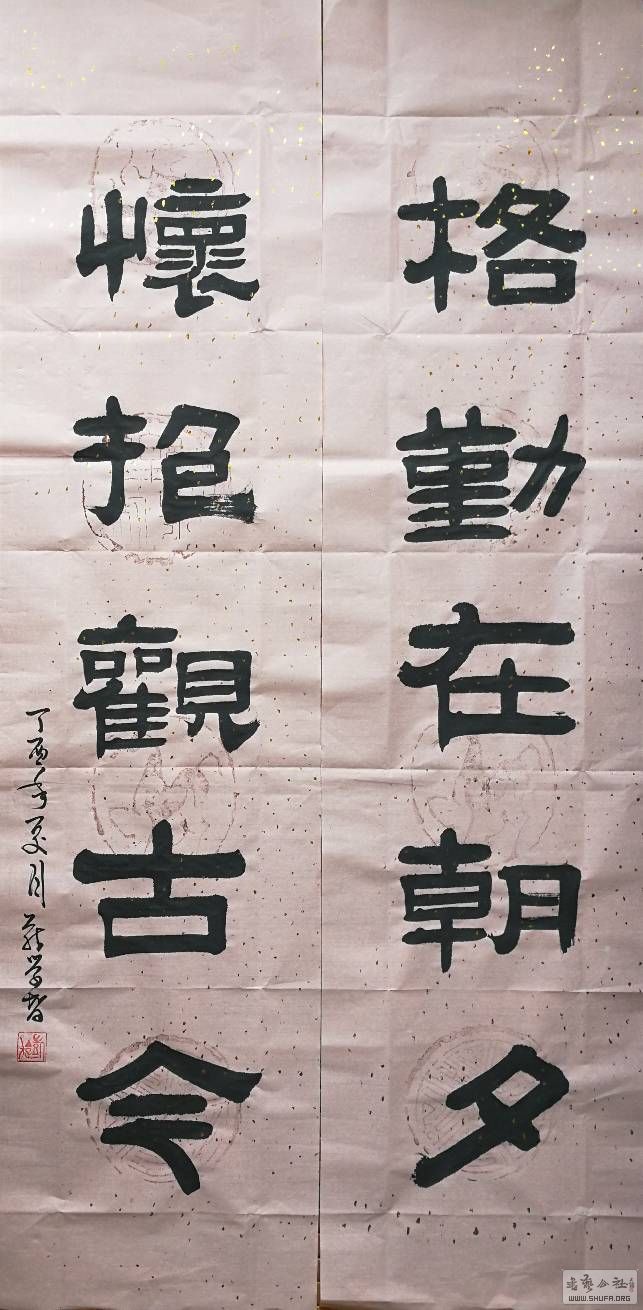 格勤在朝夕
懷抱觀古今
丁酉年夏月
WWW.SHUFA.ORG